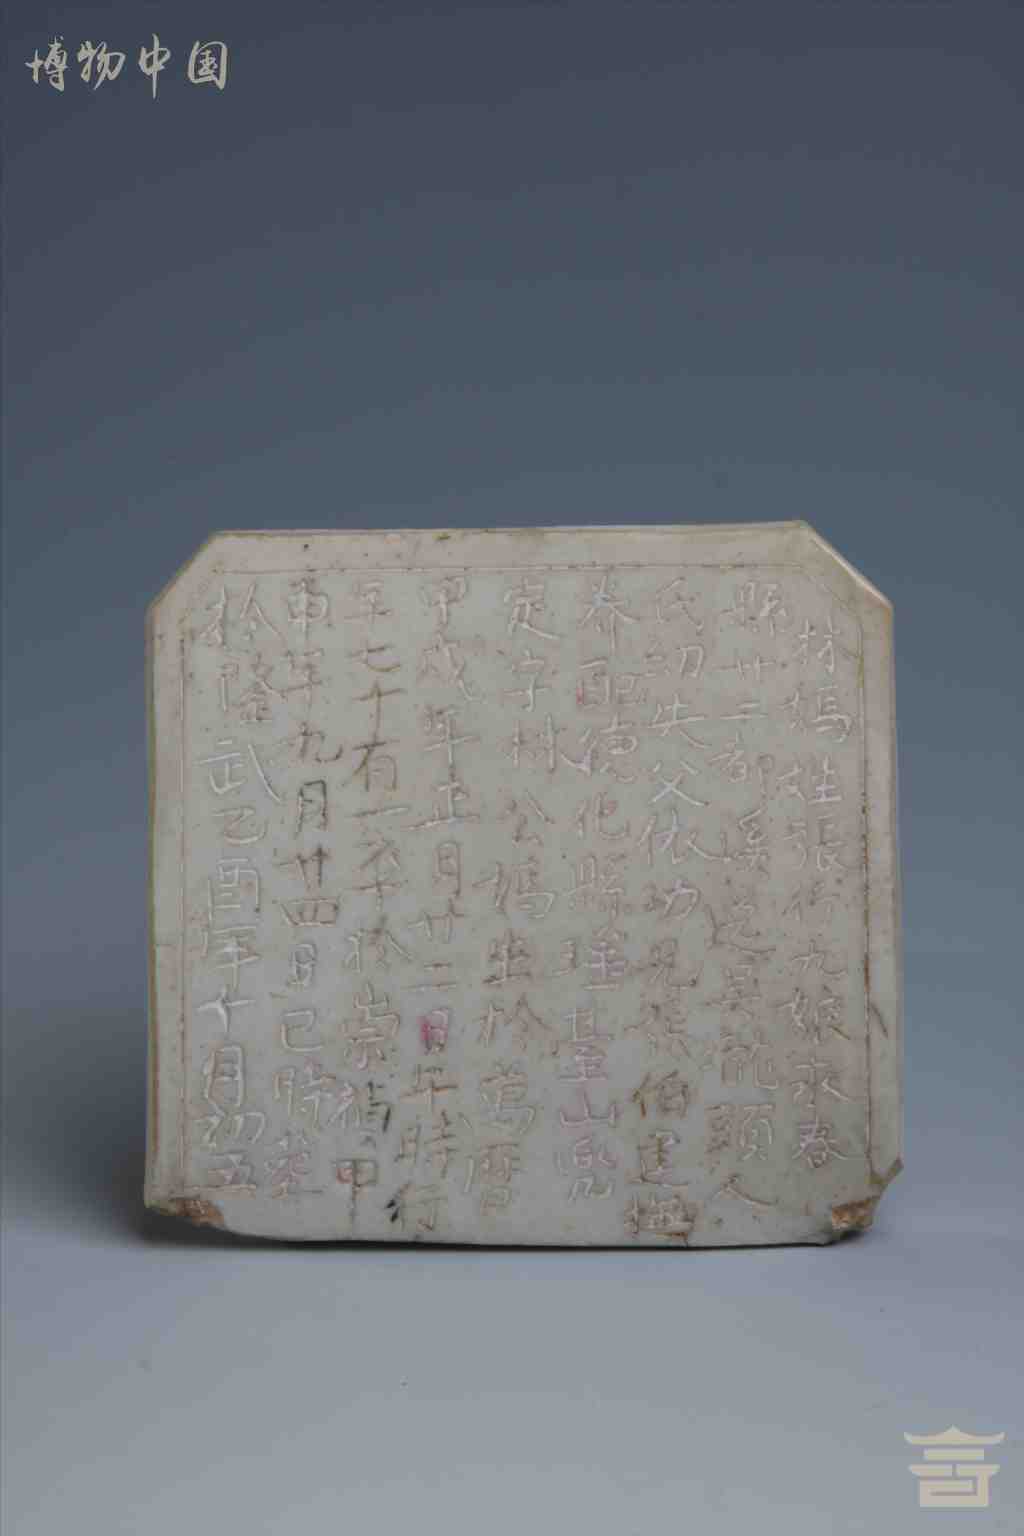 博物中国
林媽姓張行九娘永春
縣廿二都溪之具龍頭人
氏幼失父依功兄張伯運撫
养配德化縣瑶基山兜
定字林公媽生於萬曆
甲戌年正月廿二日午時行
年七十有一卒於崇禎甲
申年九月廿四日巳時葬
於隆武乙酉年十月初五